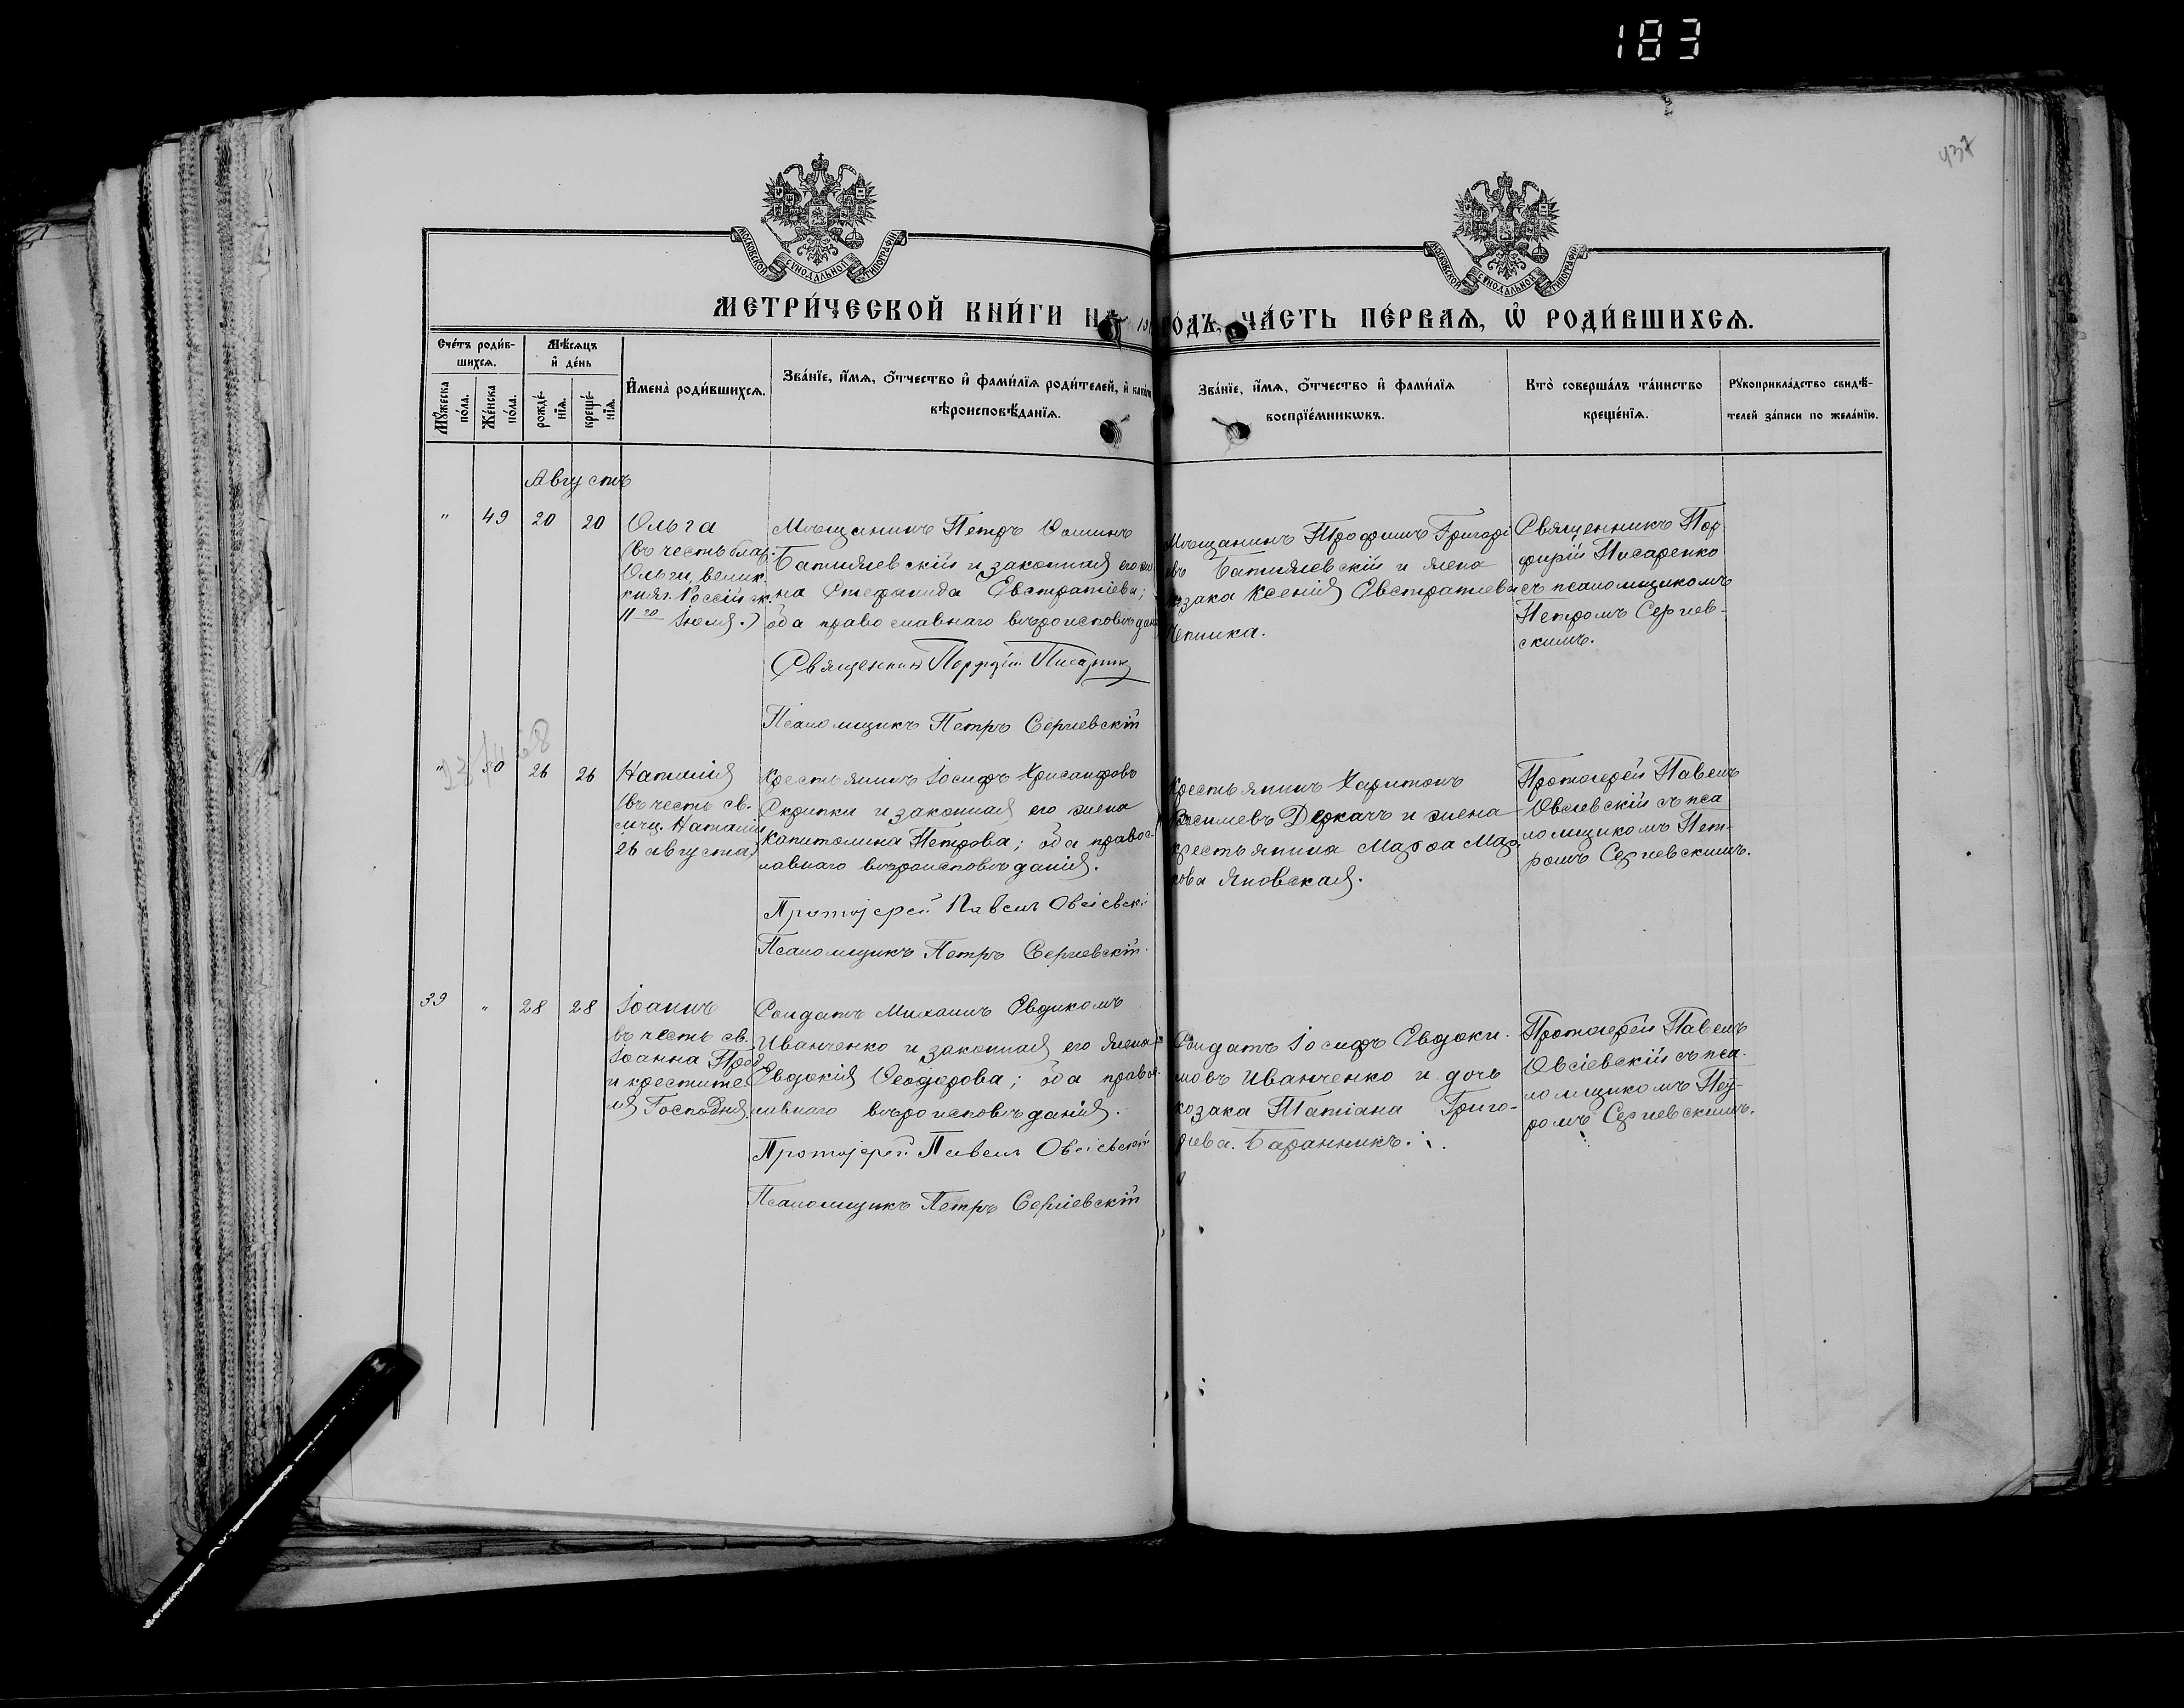 183
437
МОСКОВСКОЙ СѴНОДАЛЬНОЙ ТИПОГРАФІИ
МОСКОВСКОЙ СѴНОДАЛЬНОЙ ТИПОГРАФІИ
МЕТРИ́ЧЕСКОЙ КНИ́ГИ НА 19 ГО́ДЪ, ЧА́СТЬ ПЕ́РВАѦ, Ѽ РОДИ́ВШИХСѦ.
Сче́тъ роди́в-
шихсѧ.
Мѣ́сѧцъ
и҆ де́нь
Мꙋ́жеска
по́ла.
Же́нска
по́ла.
рожде́-
нїѧ.
креще́-
нїѧ.
И҆мена̀ роди́вшихсѧ.
Зва́нїе, и҆́мѧ, ѻ҆́тчество и҆ фами́лїѧ роди́телей, и҆ како́гѡ
вѣроисповѣ́данїѧ.
Зва́нїе, и҆́мѧ, ѻ҆́тчество и҆ фами́лїѧ
воспрїе́мникѡвъ.
Кто̀ соверша́лъ та́инство
креще́нїѧ.
Рꙋкоприкла́дство свидѣ́-
телей за́писи по жела́нїю.
Августъ
" 49 20 20
Ольга
(въ честь благ.
Ольги, велик.
княг. Россійск.
11го Іюля.)
Мѣщанинъ Петръ Ѳоминъ
и законная его же
на Стефанида Евстратіева;
оба православнаго вѣроисповѣдан
Священник Порфирій Писаренко
Псаломщикъ Петръ Сергіевскій
Мѣщанинъ Трофимъ Григорі
евъ и жена
козака Ксенія Евстратіева
Чепинка.
Священникъ Пор
фирій Писаренко
съ псаломщикомъ
Петромъ Сергіев-
скимъ.
" 50 26 26
Наталія
(въ честь св.
мчц. Наталіи
26 августа)
Крестьянинъ Іосифъ Хрисанфовъ
Скрипки и законная его жена
Капитолина Петрова; оба правос-
лавнаго вѣроисповѣданія.
Протоіерей Павелъ Овсіевскі
Псаломщикъ Петръ Сергіевскій.
Крестьянинъ Харитонъ
Васильевъ Деркачъ и жена
крестьянина Марѳа Мар
кова Яновская.
Протоіерей Павелъ
Овсіевскій съ пса
ломщикомъ Пет-
ромъ Сергіевскимъ.
39 " 28 28
Іоаннъ
въ честь св.
Іоанна Пред.
и крестите
ля Господня.
Солдатъ Михаилъ Евдокимъ
Иванченко и законная его жена
Евдокія Ѳеодорова; оба правос
лавнаго вѣроисповѣданія.
Протоіерей Павелъ Овсіевскій
Псаломщикъ Петръ Сергіевскій
Солдатъ Іосифъ Евдоки-
мовъ Иванченко и дочь
козака Татіана Григо-
рьева Баранникъ.
Протоіерей Павелъ
Овсіевскій съ пса-
ломщикомъ Пет-
ромъ Сергіевскимъ.